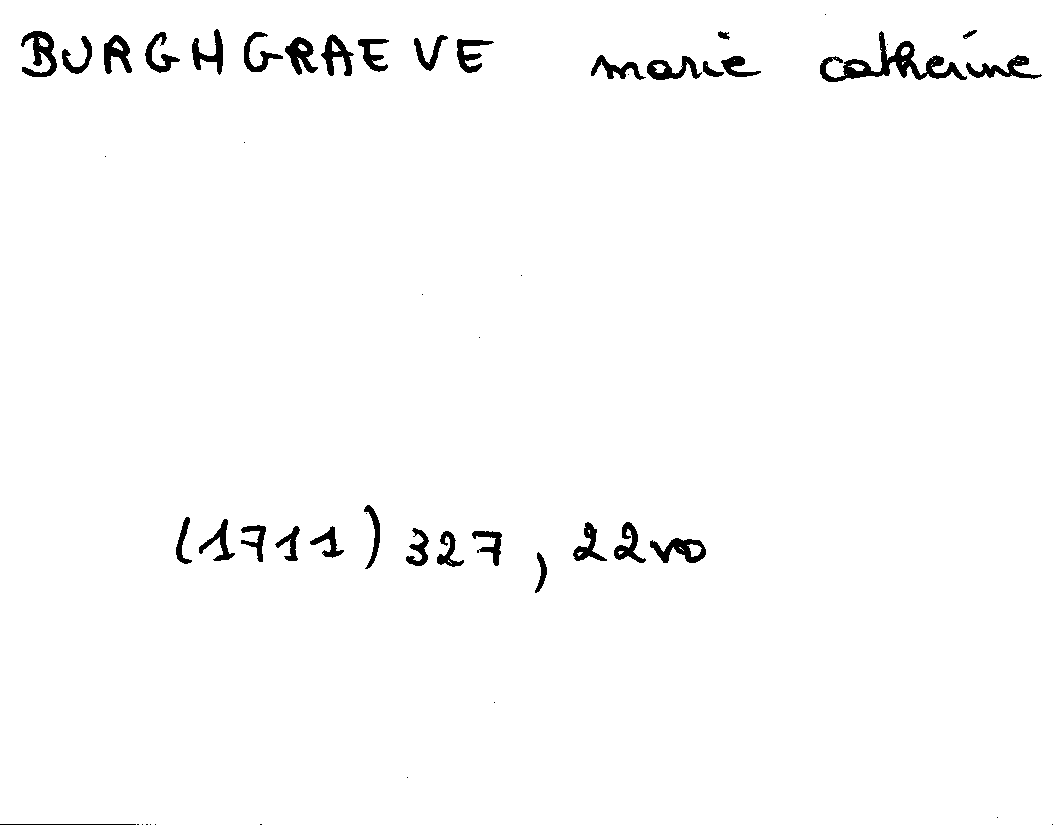 BURGHGRAEVE marie catherine
(1711) 327, 22vo